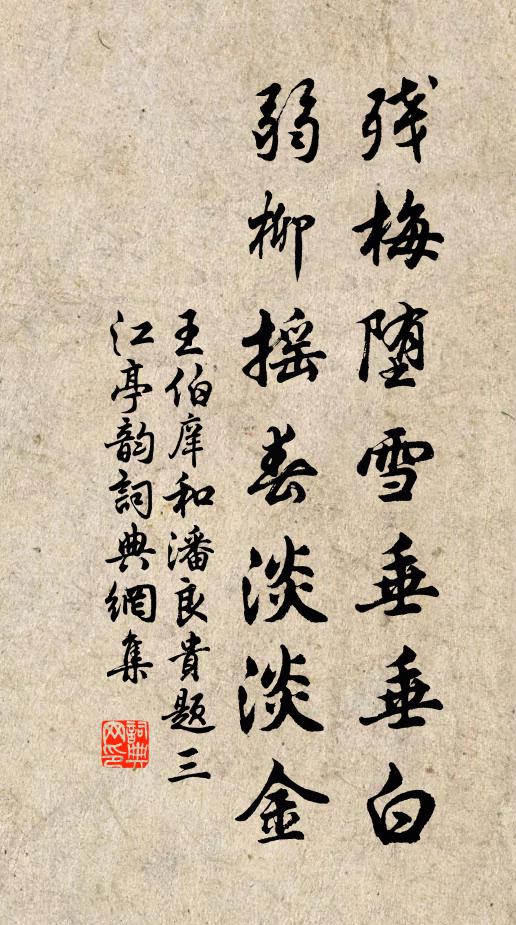 残梅堕雪垂垂白
弱柳摇春淡淡金
王伯庠和潘良贵题三
江亭韵詞典網集
詞典网印